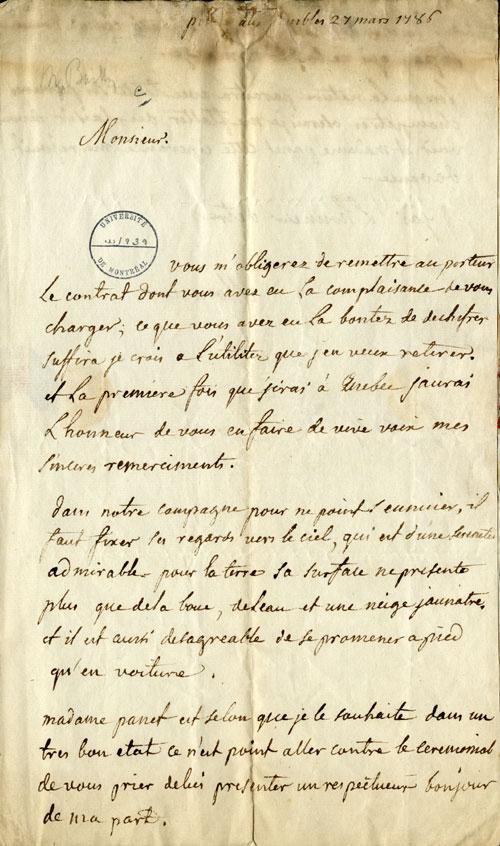 aux 27 mars 1786
Monsieur.
UNIVERSITÉ
1939
DE MONTRÉAL
vous m'obligerez de remettre au porteur
Le contrat dont vous avez eu La complaisance de vous
charger; ce que vous avez eu La bontez de dechifrer
suffira je crois a L'utilitez que j'en veux retirer.
et La premiere fois que j'irai à Quebec j'aurai
L'honneur de vous en faire de vive voix mes
sinceres remerciments.
dans notre campagne pour ne point s'ennuier, il
faut fixer ses regards vers le ciel, qui est d'une serenitez
admirable pour la terre sa surface ne presente
plus que de la boue, de Leau et une neige jaunatre,
et il est aussi desagreable de se promener a pied
qu'en voiture.
madame panet est selon que je le souhaite dans un
tres bon etat ce n'est point aller contre le ceremonial
de vous prier de lui presenter un respectueux bonjour
de ma part.